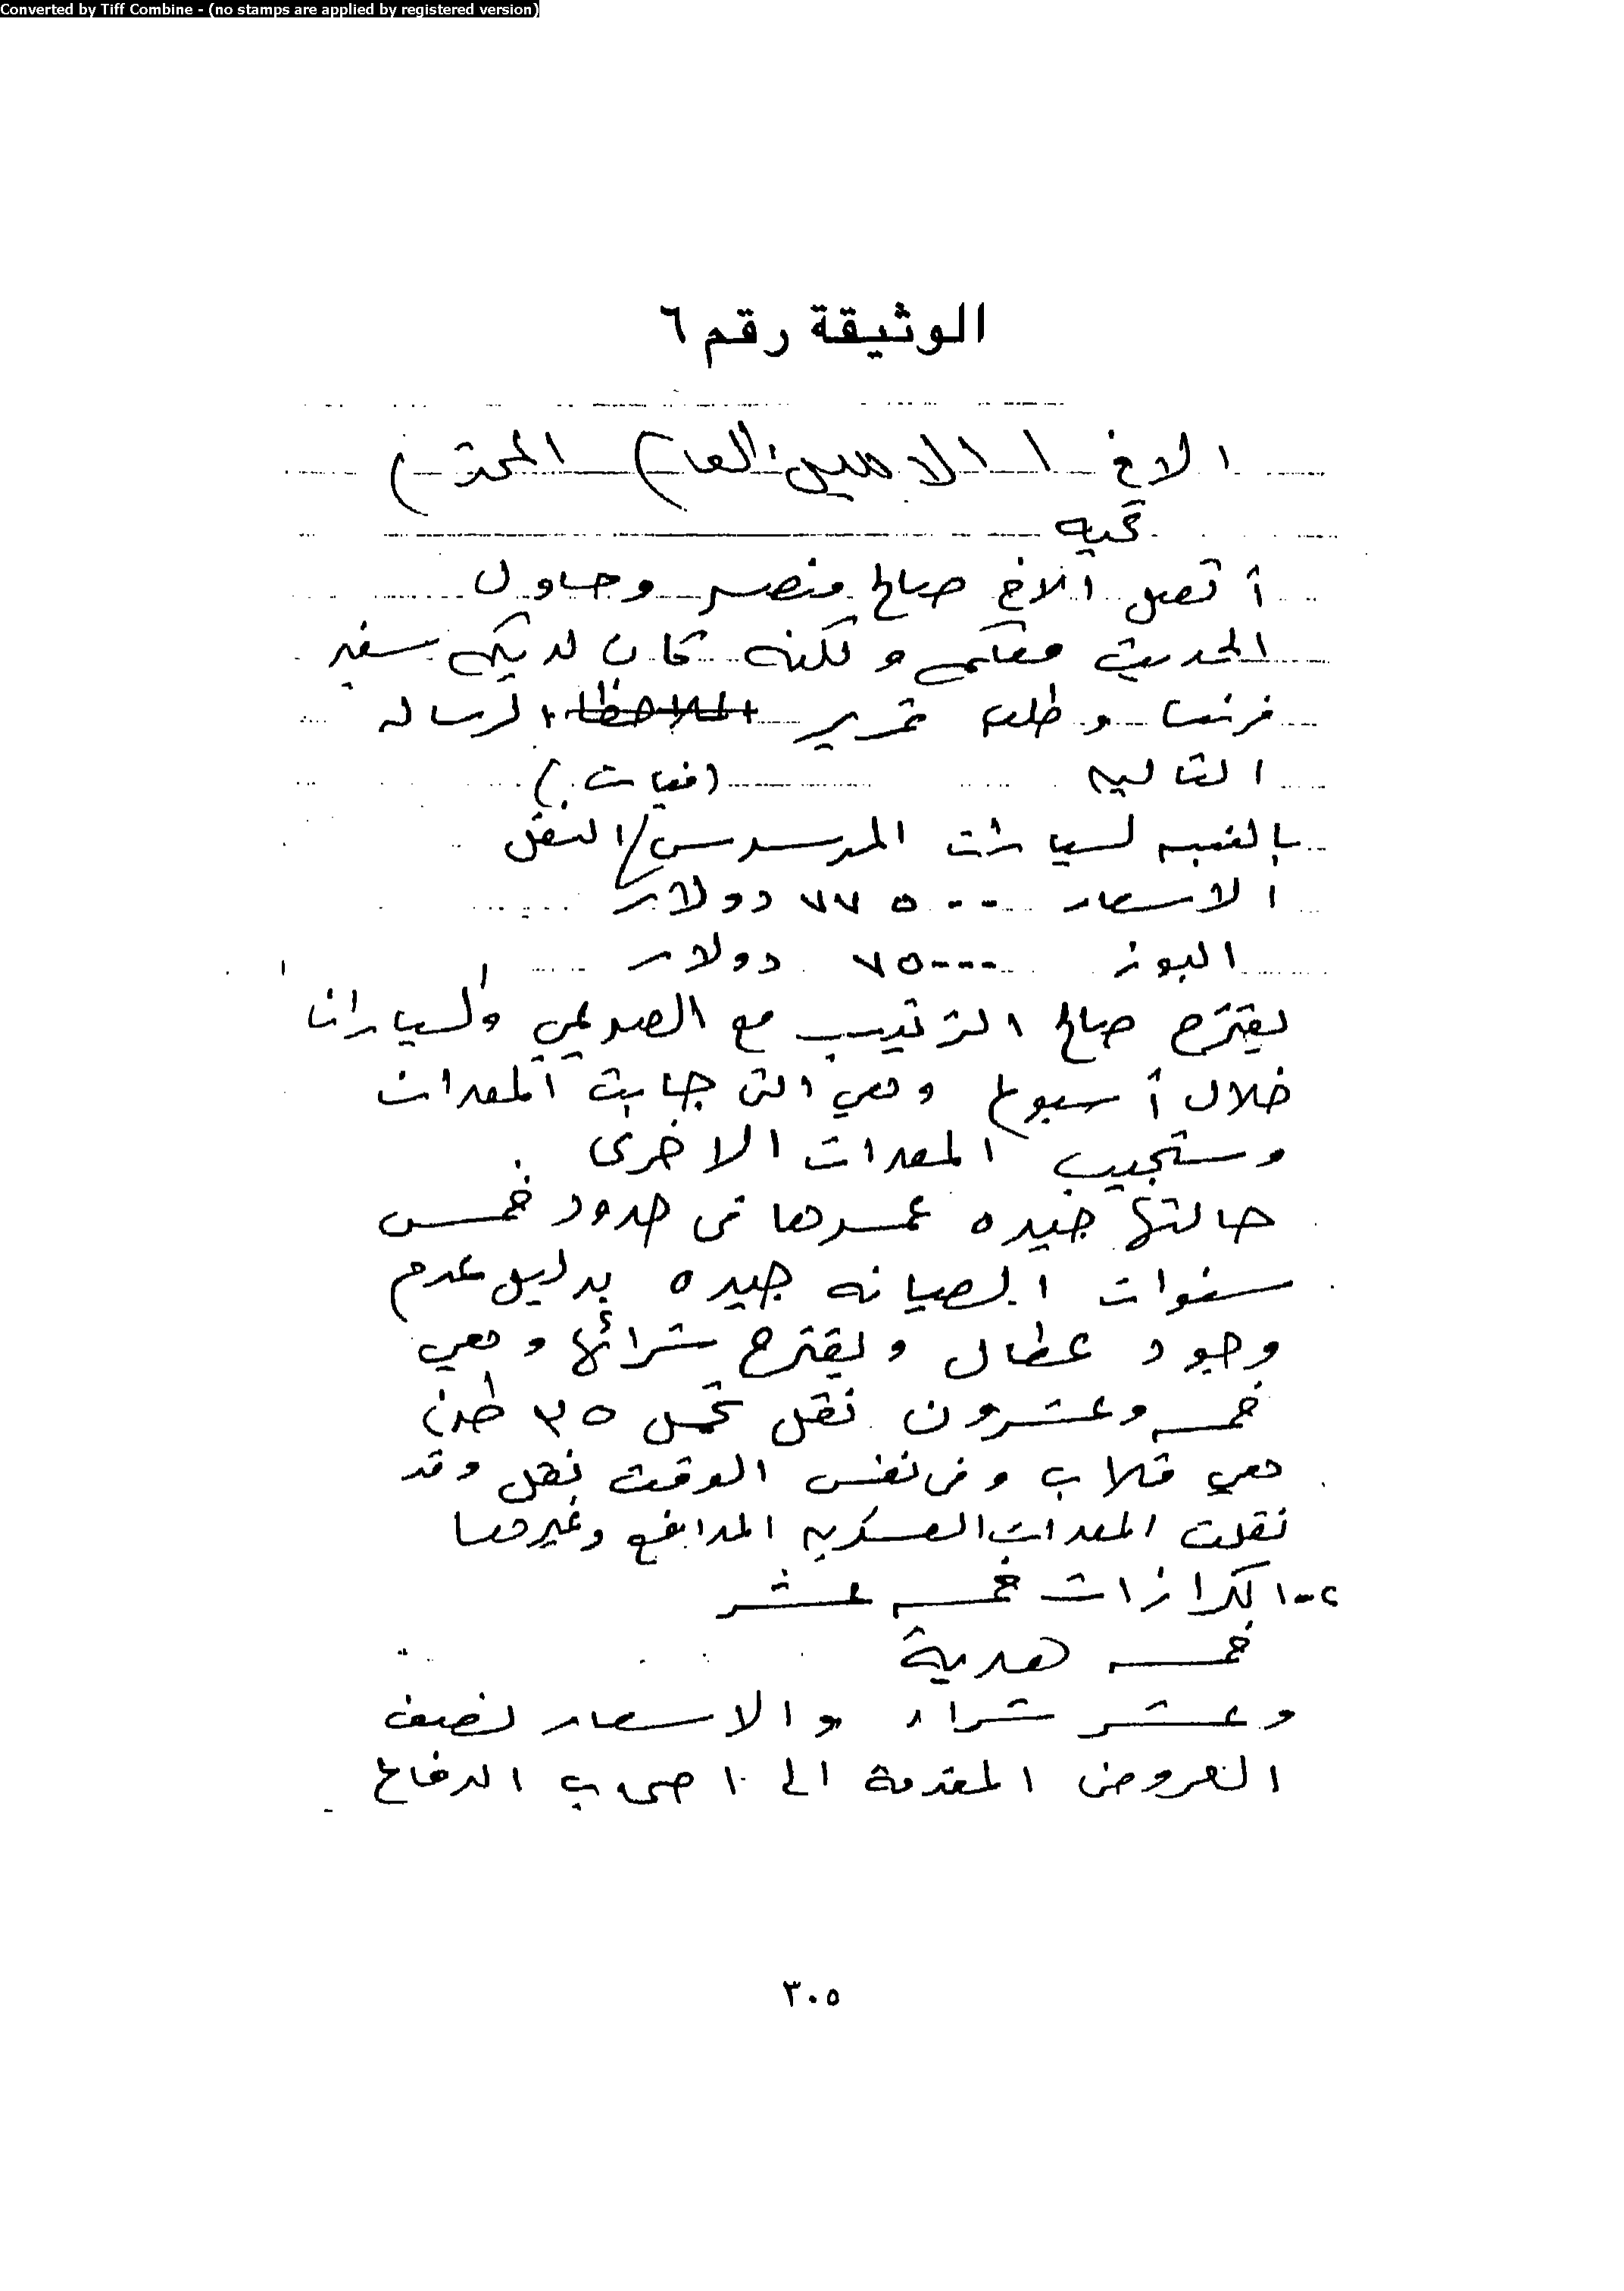 Converted by Tiff Combine - (no stamps are applied by registered version)
الوثيقة رقم ٦
الاخ / الامين العام المحترم
تحيه
أتصل الاخ صالح منصر وحاول
الحديث معكم ولكنه كان لديكم سفير
فرنسا وطلب تمرير الملاحظا الرساله
التاليه
بالنسبه لسيارات المرسدس/النقل
الاسعار ٧٧٥٠٠ دولار
دولار
يقترح صالح الترتيب مع الصوملي والسيارات
خلال أسبوع وهي التي جابت المعدات
وستجيب المعدات الاخرى
حالتها جيده عمرها في حدود خمس
سنوات الصيانه جيده بدليل عدم
وجود عطال ويقترح شرائها وهي
خمسه وعشرون نقل تحمل ٣٥ طن
هي قلاب وفي نفس الوقت نقل وقد
نقلت المعدات العسكريه المدافع وغيرها
٢- الكرازات خمسه عشر
خمسه هدية
وعشر شراء والاسعار نصف
العروض المقدمة الى اصحاب الدفاع
٣٠٥